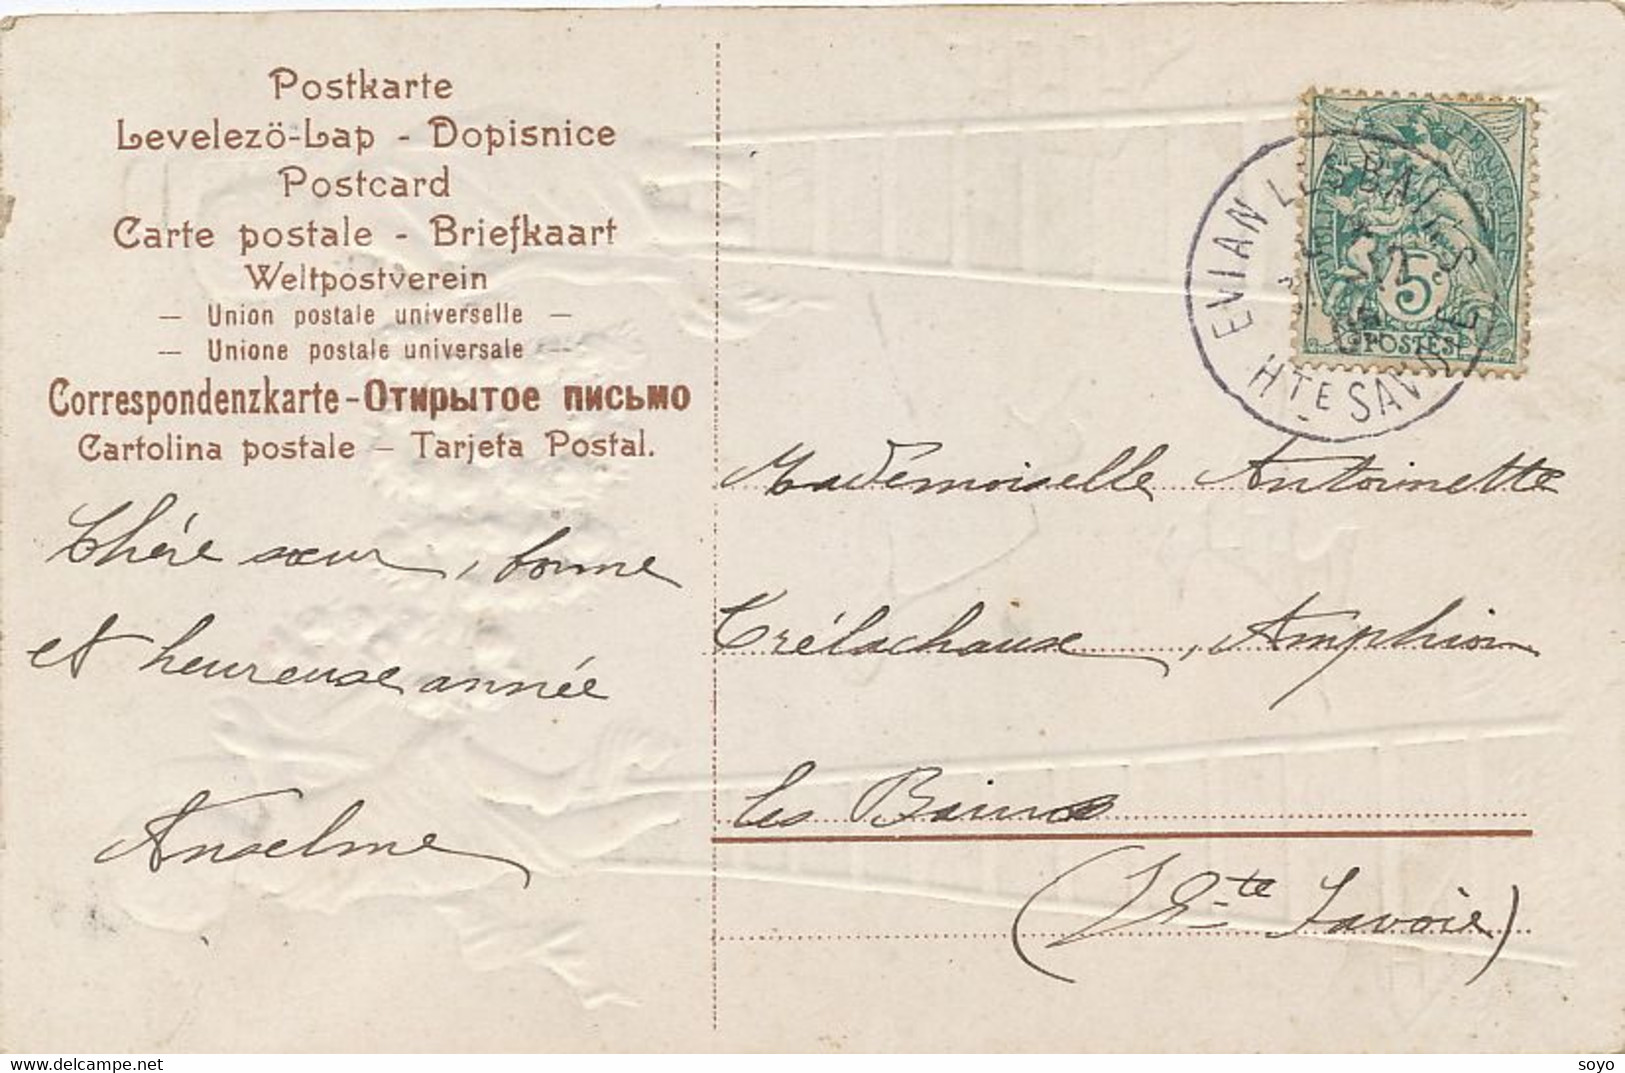 Postkarte
Levelezö-Lap - Dopisnice
Postcard
Carte postale - Briefkaart
Weltpostverein
— Union postale universelle —
— Unione postale universale —
Correspondenzkarte - Открытое письмо
Cartolina postale — Tarjeta Postal.
Chére sœur, bonne
et heureuse année
Anselme
EVIAN LES BAINS
HTE SAVOIE
5
POSTES
Mademoiselle Antoinette
Trélachaux, Amphion
les Bains
(Hte Savoie)
delcampe.net
soyo